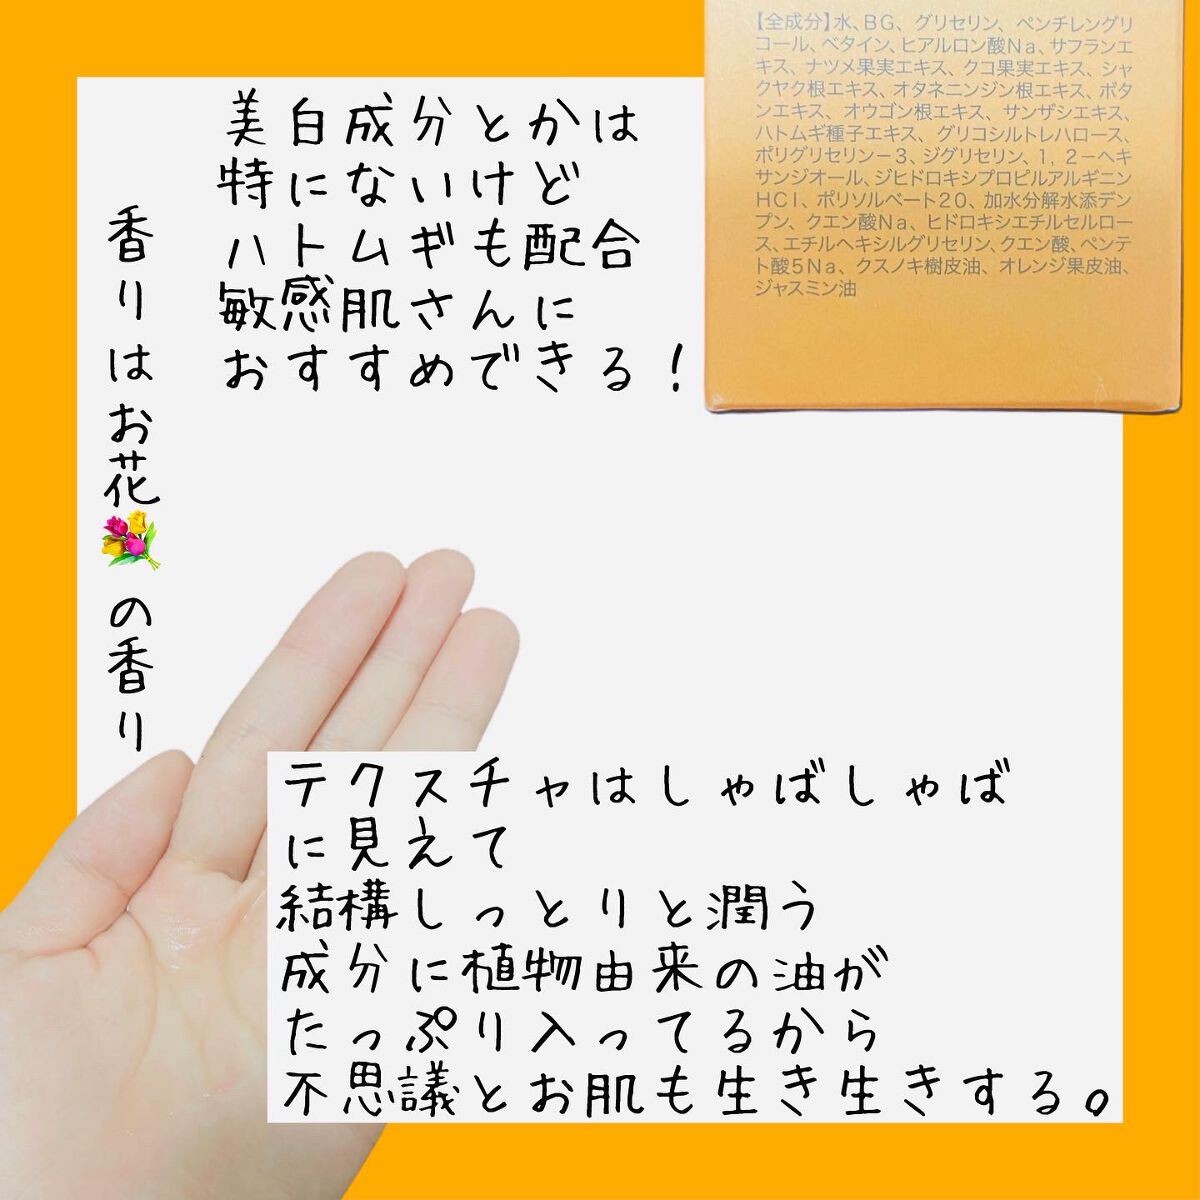 【全成分】水、BG、グリセリン、ペンチレングリ
コール、ベタイン、ヒアルロン酸Na、サフランエ
キス、ナツメ果実エキス、クコ果実エキス、シャ
クヤク根エキス、オタネニンジン根エキス、ボタ
ンエキス、オウゴン根エキス、サンザシエキス、
ハトムギ種子エキス、グリコシルトレハロース、
ポリグリセリン-3、ジグリセリン、1,2-ヘキ
サンジオール、ジヒドロキシプロピルアルギニン
HCl、ポリソルベート20、加水分解水添デン
プン、クエン酸Na、ヒドロキシエチルセルロー
ス、エチルヘキシルグリセリン、クエン酸、ペンテ
ト酸5Na、クスノキ樹皮油、オレンジ果皮油、
ジャスミン油
美白成分とかは
特にないけど
ハトムギも配合
敏感肌さんに
おすすめできる!
香りはお花💐の香り
テクスチャはしゃばしゃば
に見えて
結構しっとりと潤う
成分に植物由来の油が
たっぷり入ってるから
不思議とお肌も生き生きする。